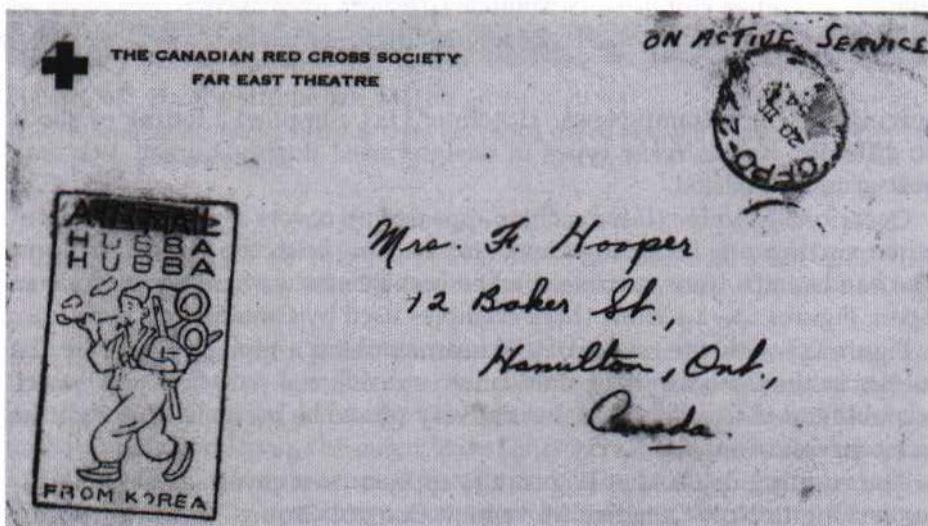 THE CANADIAN RED CROSS SOCIETY
FAR EAST THEATRE
ON ACTIVE SERVICE
CFPO-27
20 III
54
AIR MAIL
HUBBA
HUBBA
FROM KOREA
Mrs. F. Hooper
12 Baker St.,
Hamilton, Ont,
Canada.